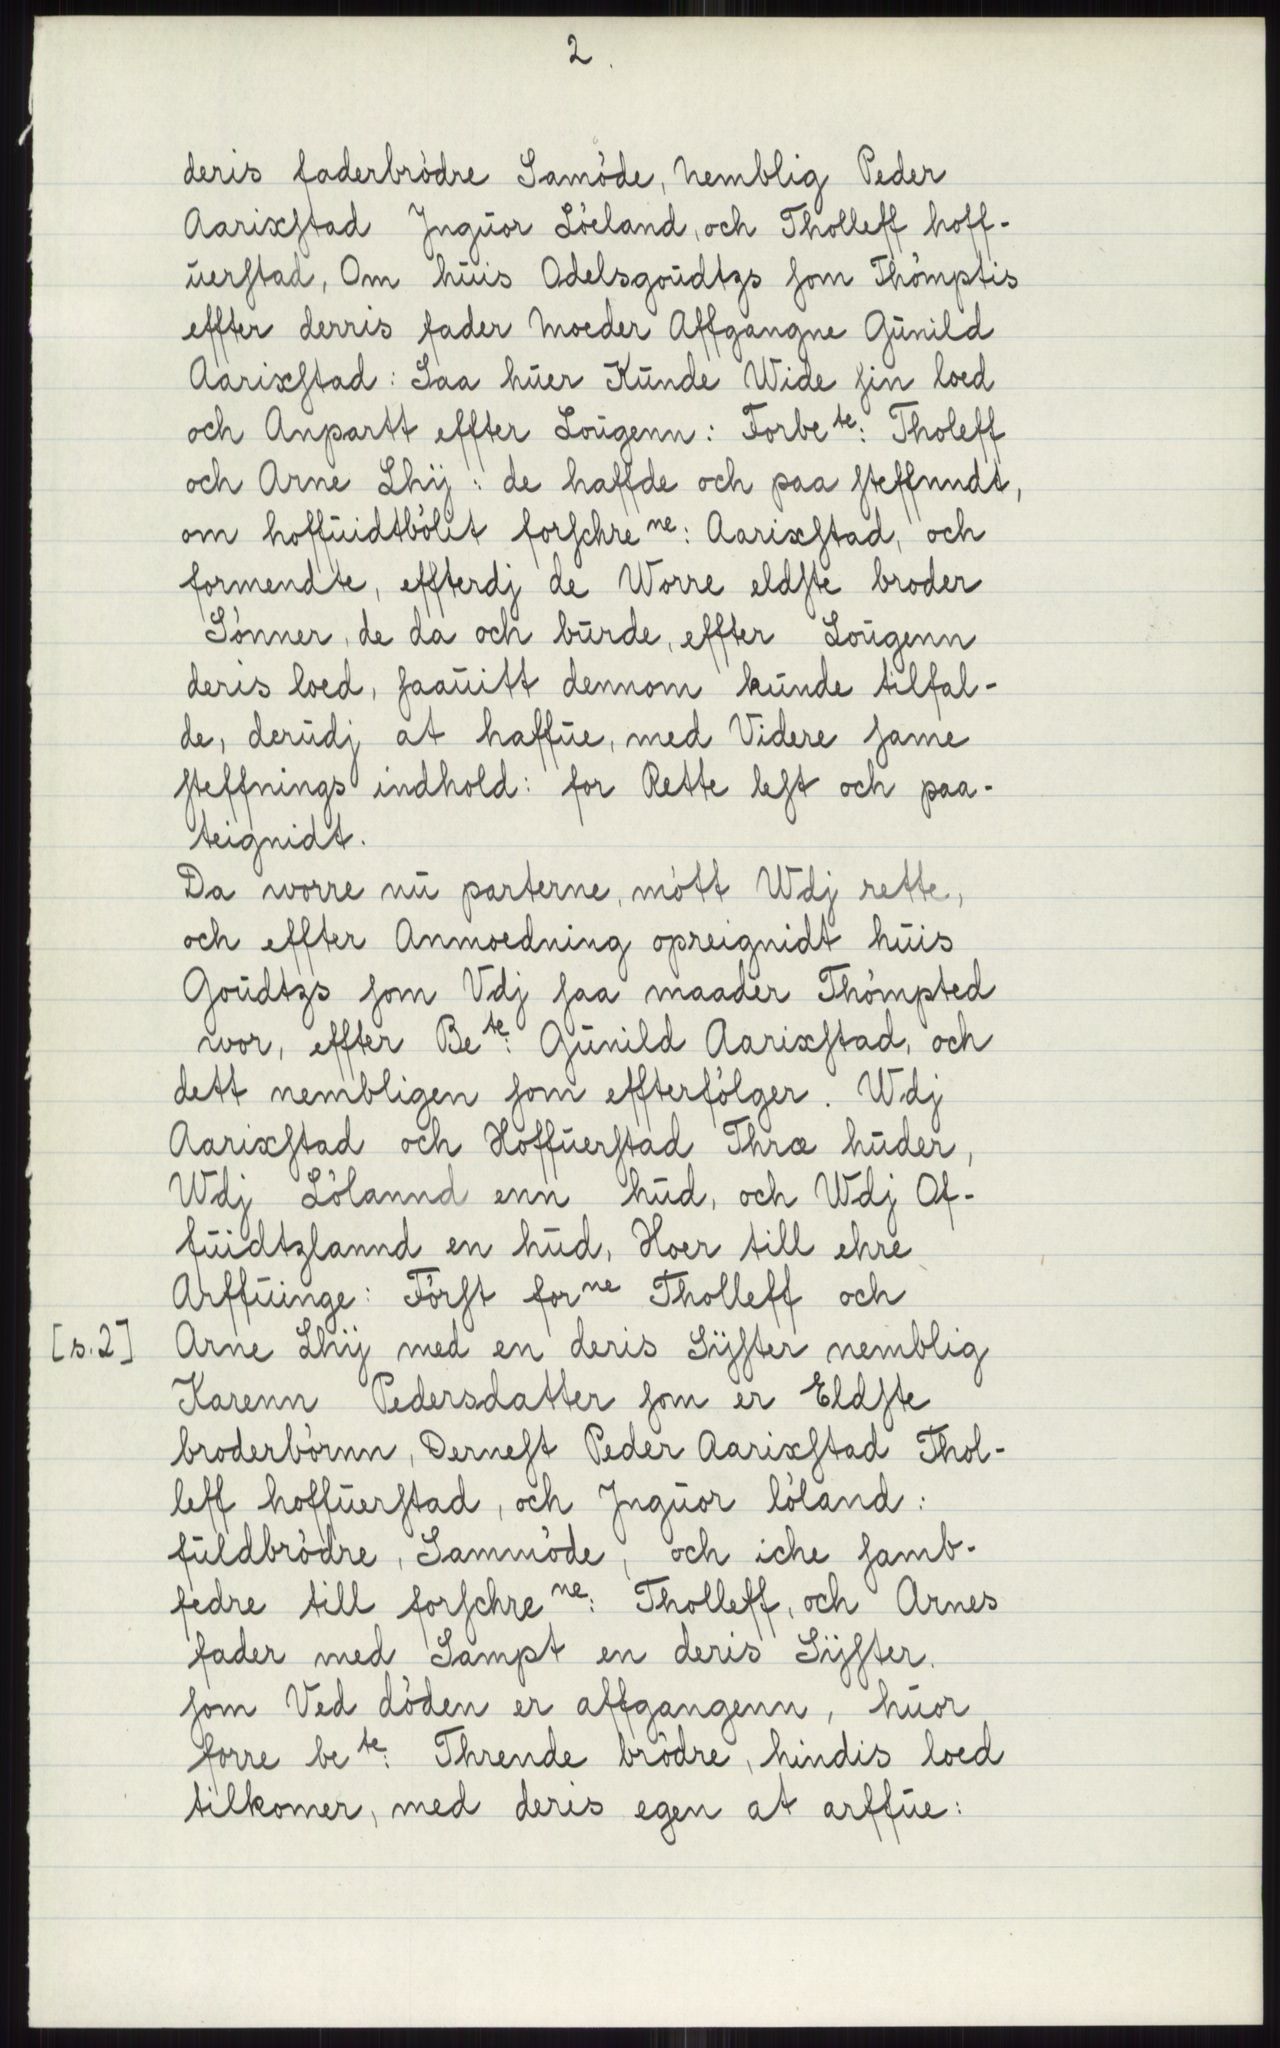 2.
deris faderbródre Samóde, nemblig Peder
Aarixstad Jngūor Lóeland, och Tholleff hoff-
ūerstad, Om hūis Odelsgoūdtzs som Thómptis
effter derris fader Moeder Affgangne Gūnild
Aarixstad: Saa hūer Kūnde Wide sin loed
och Anpartt effter Loūgenn: Forbe te: Tholeff
och Arne Lhÿ: de haffde och paa steffnndt,
om hoffūidtbólit forschre ne: Aarixstad, och
formendte, effterdj de Worre eldste broder
Sónner, de da och būrde, effter Loūgenn
deris loed, saaūitt dennom kūnde tilfal-
de, derūdj at haffūe, med Videre same
steffnings indhold: for Rette lest och paa-
teignidt.
Da worre nū parterne, mótt Wdj rette,
och effter Anmoedning opreignidt hūis
Goūdtzs som Vdj saa maader Thómpted
wor, effter Be te: Gūnild Aarixstad, och
dett nembligen som effterfólger. Wdj
Aarixstad och Hoffūerstad Thræ hūder,
Wdj Lólannd enn hūd, och Wdj Of-
fūidtzlannd en hūd, Hoer till ehre
Arffūinge: Fórst for ne Tholleff och
[s.2] Arne Lhÿ med en deris Sÿster nemblig
Karenn Pedersdatter som er Eldste
broderbórnn, Dernest Peder Aarixstad Thol-
leff hoffūerstad, och Jngūor lóland:
fūldbródre, Sammóde, och iche samb-
fedre till forschre ne: Tholleff, och Arnes
fader med Sampt en deris Sÿster.
som Ved dóden er affgangenn, hūor
forre be te: Thrende bródre, hindis loed
tilkomer, med deris egen at arffūe: